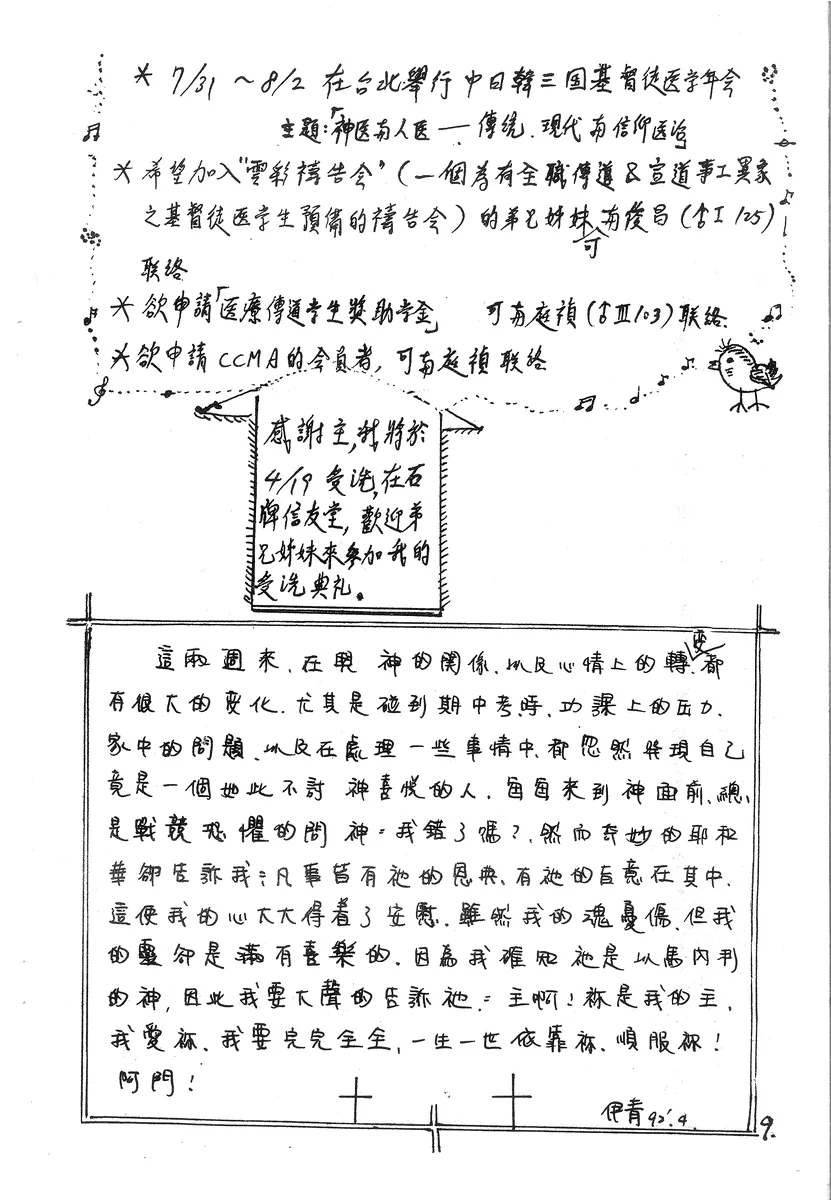 * 7/31 ~ 8/2 在台北舉行中日韓三国基督徒医学年会
主題:「神医与人医 — 傳統、現代与信仰医治
* 希望加入"雲彩禱告会" (一個為有全職傳道 & 宣道事工異象
之基督徒医学生預備的禱告会) 的弟兄姊妹可与俊昌 (古I 125)
联络
* 欲申請「医療傳道学生獎助学金」 可与庭禎 (古III 103) 联络.
* 欲申請 CCMA 的会員者, 可与庭禎联络
感謝主, 我將於
4/19 受洗, 在石
牌信友堂, 歡迎弟
兄姊妹來參加我的
受洗典礼。
這兩週來、在與 神的関係、以及心情上的轉変、都
有很大的変化. 尤其是碰到期中考時、功課上的压力、
家中的問題、以及在處理一些事情中、都忽然發現自己
竟是一個如此不討 神喜悅的人. 每每來到神面前、總
是戰兢恐懼的問 神:我錯了嗎?. 然而奇妙的耶和
華卻告訴我:凡事皆有祂的恩典、有祂的旨意在其中.
這使我的心大大得着了安慰. 雖然我的魂憂傷、但我
的靈卻是滿有喜樂的. 因為我確知祂是以馬內利
的神, 因此我要大聲的告訴祂.:主啊!祢是我的主,
我愛祢、我要完完全全、一生一世依靠祢、順服祢!
阿門!
伊青 92'.4.
9.